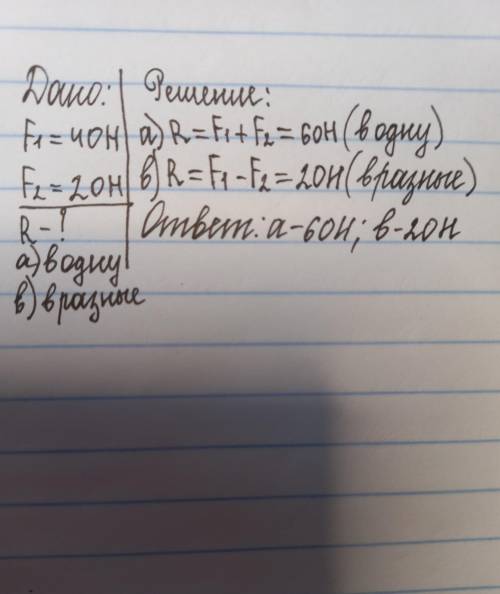 Дано:
F1=40Н
F2=20Н
R-?
а) в одну
в) в разные
Решение:
а) R=F1+F2=60Н (в одну)
в) R=F1-F2=20Н (в разные)
Ответ: а-60Н; в-20Н